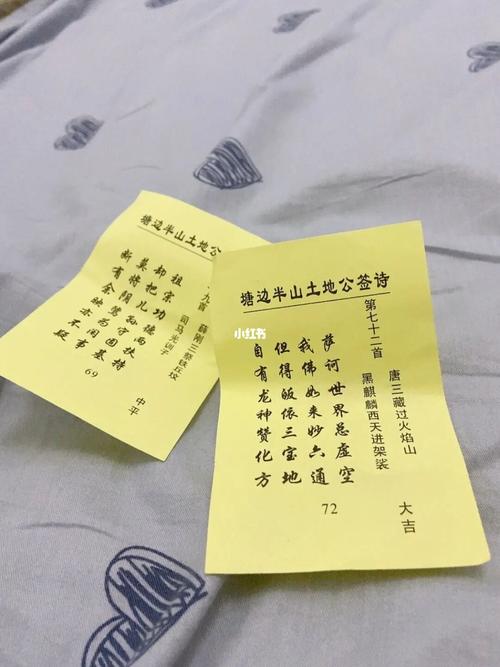 塘边半山土地公
九首
薛刚三祭铁丘坟
司马光训子
却把儿孙守固基
莫将阴骘为闲事
有余殃亦不疑
69
中平
塘边半山土地公签诗
第七十二首
唐三藏过火焰山
黑麒麟西天进架裟
萨诃世界总虚空
我佛如来妙六通
但得皈依三宝地
自有龙神赞化方
72
大吉
小红书